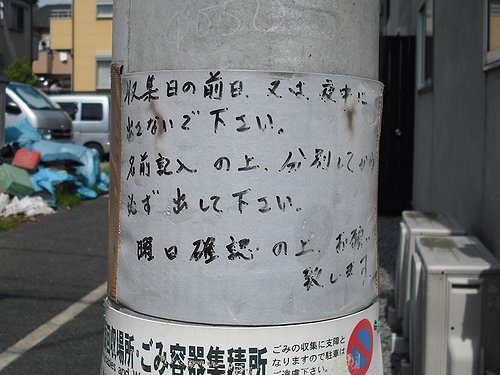 収集日の前日、又は、夜中に
出さないで下さい。
名前記入の上、分別してから
必ず出して下さい。
曜日確認の上、お願い
致します
収場所・ごみ容器集積所
ごみの収集に支障と
なりますので駐車は
ご遠慮下さい。